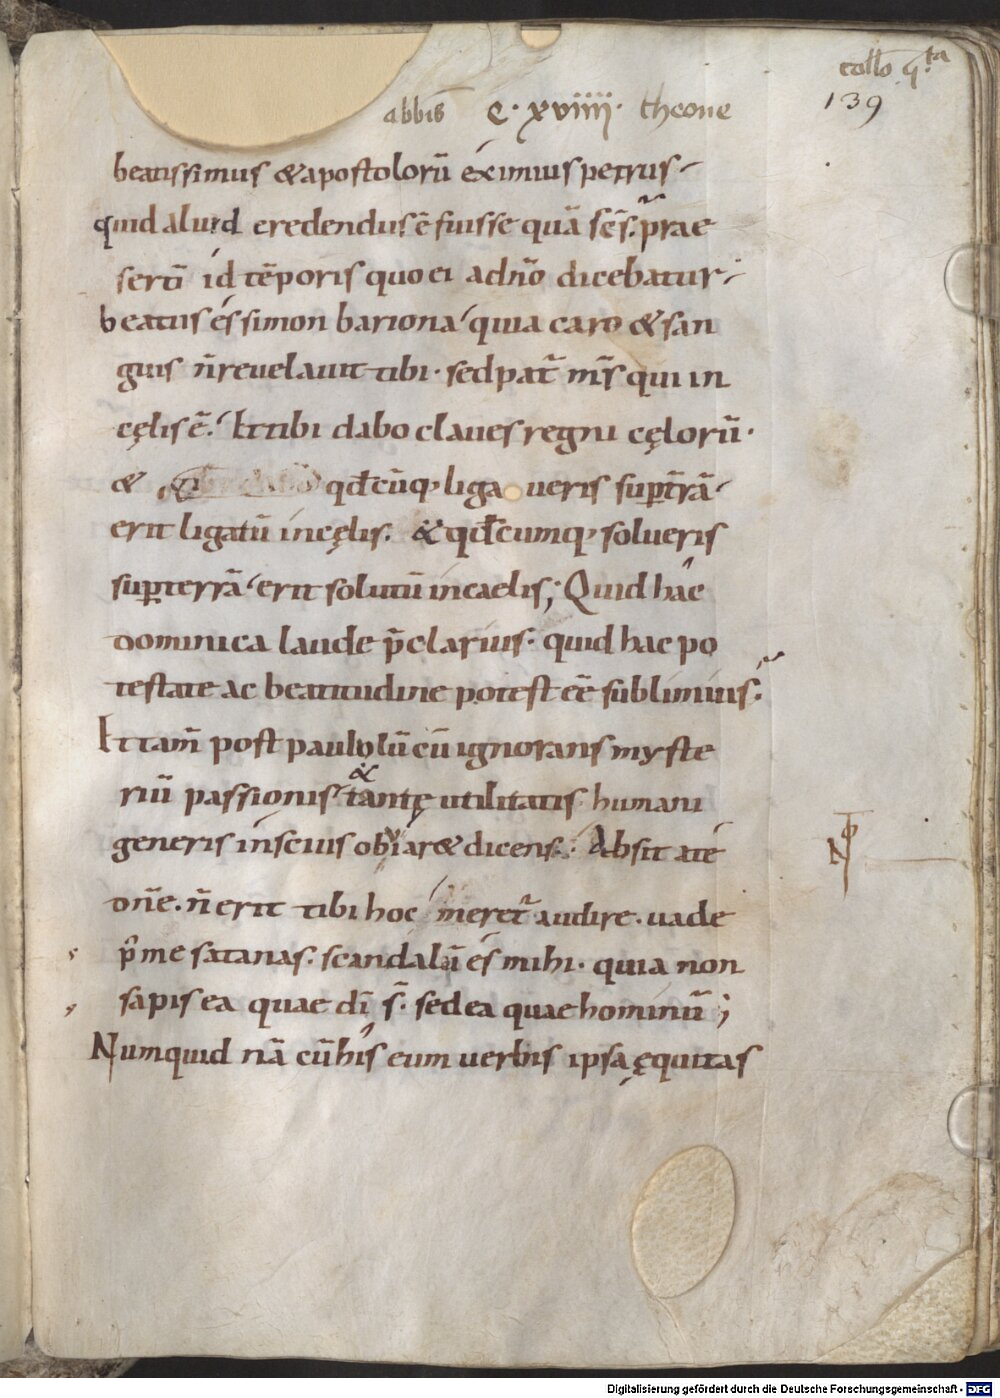 collo q.ta
abbis C. xviiii. theone
139
beatissimus & apostolorū eximius petrus
quid aliud credendus ē fuisse quā scs̄. prae
sertī id tēporis quo ei a dn̄o dicebatur
beatus es simon bariona quia caro & san
guis n̄ reuelauit tibi. sed pat̄ ms̄ qui in
cęlis ē. Et tibi dabo claues regni cęlorū.
& qđcūq; liga ueris sup t̄rā
erit ligatū in cęlis. & qđcumq; solueris
sup terrā erit solutū in caelis; Quid hac
dominica laude p̄clarius. quid hac po
testate ac beatitudine potest eē sublimius.
Et tam̄ post paululū cū ignorans myste
riū passionis & tantę utilitatis humani
generis inscius obuiar& dicens. Absit a te
dn̄e. n̄ erit tibi hoc meret̄ audire. uade
p̄ me satanas. scandalū es mihi. quia non
sapis ea quae dī s̄. sed ea quae hominū;
Numquid nā cū his eum uerbis ipsa ęquitas
Digitalisierung gefördert durch die Deutsche Forschungsgemeinschaft - DFG